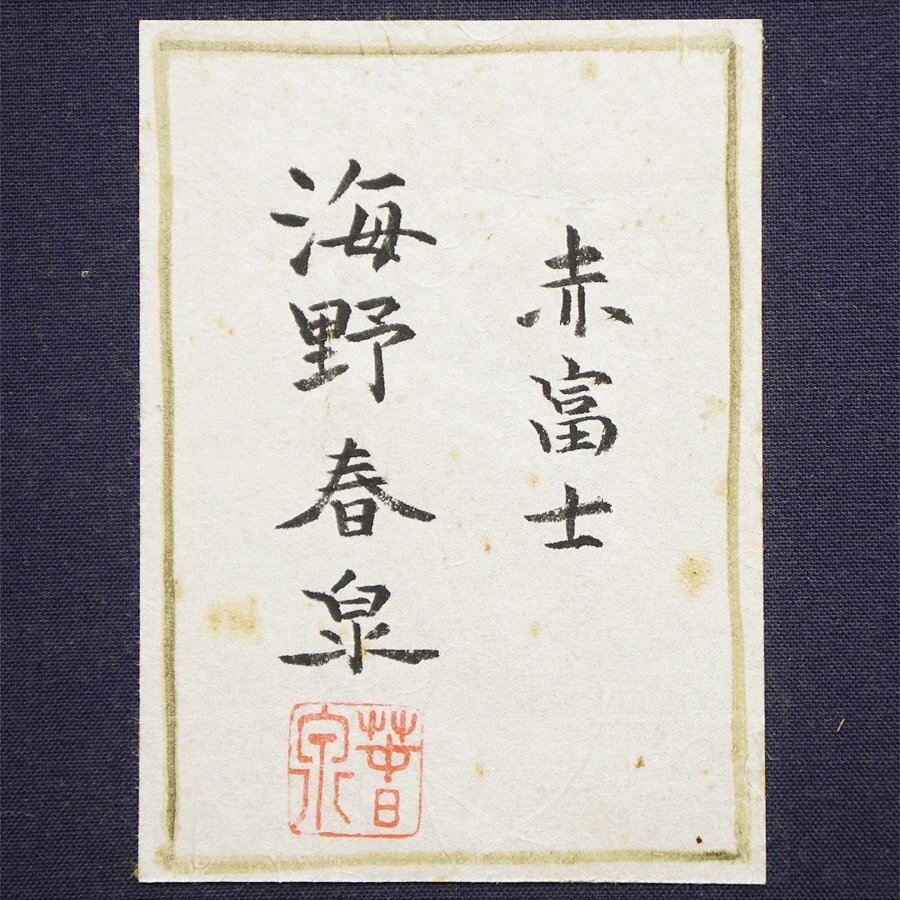 赤富士
海野春泉
春泉